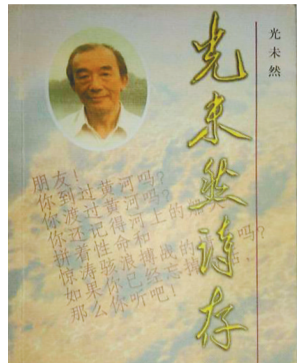 光未然
光未然诗存
朋友!
你到过黄河吗?
你渡过黄河吗?
你还记得河上的船夫
拼着性命和
惊涛骇浪搏战的情景吗?
如果你已经忘掉的话,
那么你听吧!